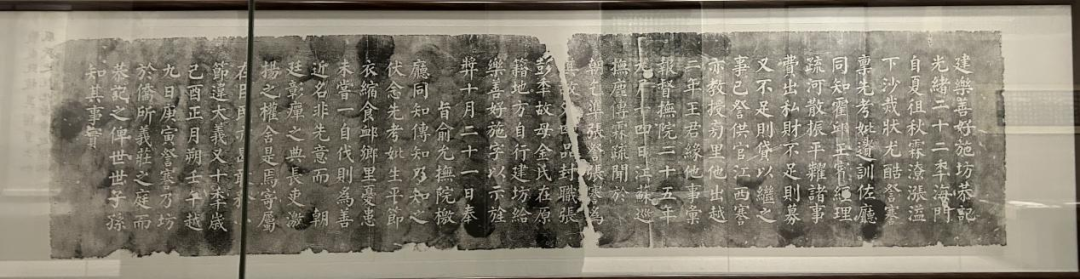 建樂善好施坊恭記
光緒二十二年海門
自夏徂秋霖潦漲溢
下沙哉狀尤酷詧謇
稟先考妣遺訓佐廳
同知霍邱王賓經理
疏河散振平糶諸事
費出私財不足則募
又不足則貸以繼之
事已詧供官江西謇
亦教授芻里他出越
二年王君緣他事稟
報督撫院三十五年
九月 四日江蘇巡
撫 傳霖疏聞於
朝允準張詧張謇為
其故父 品封職張
彭年故母金氏在原
籍地方自行建坊給
樂善好施字以示旌
獎十月二十一日奉
旨俞允撫院檄
廳同知傳知乃知之
伏念先考妣生平節
衣縮食卹鄉里憂患
未嘗一自伐則為善
近名非先意而 朝
廷彰癉之典長吏激
揚之權舍是焉寄屬
在臣民
節違大義又十年歲
己酉正月朔壬午越
九日庚寅詧謇乃坊
於僑所義莊之庭而
恭記之俾世世子孫
知其事實